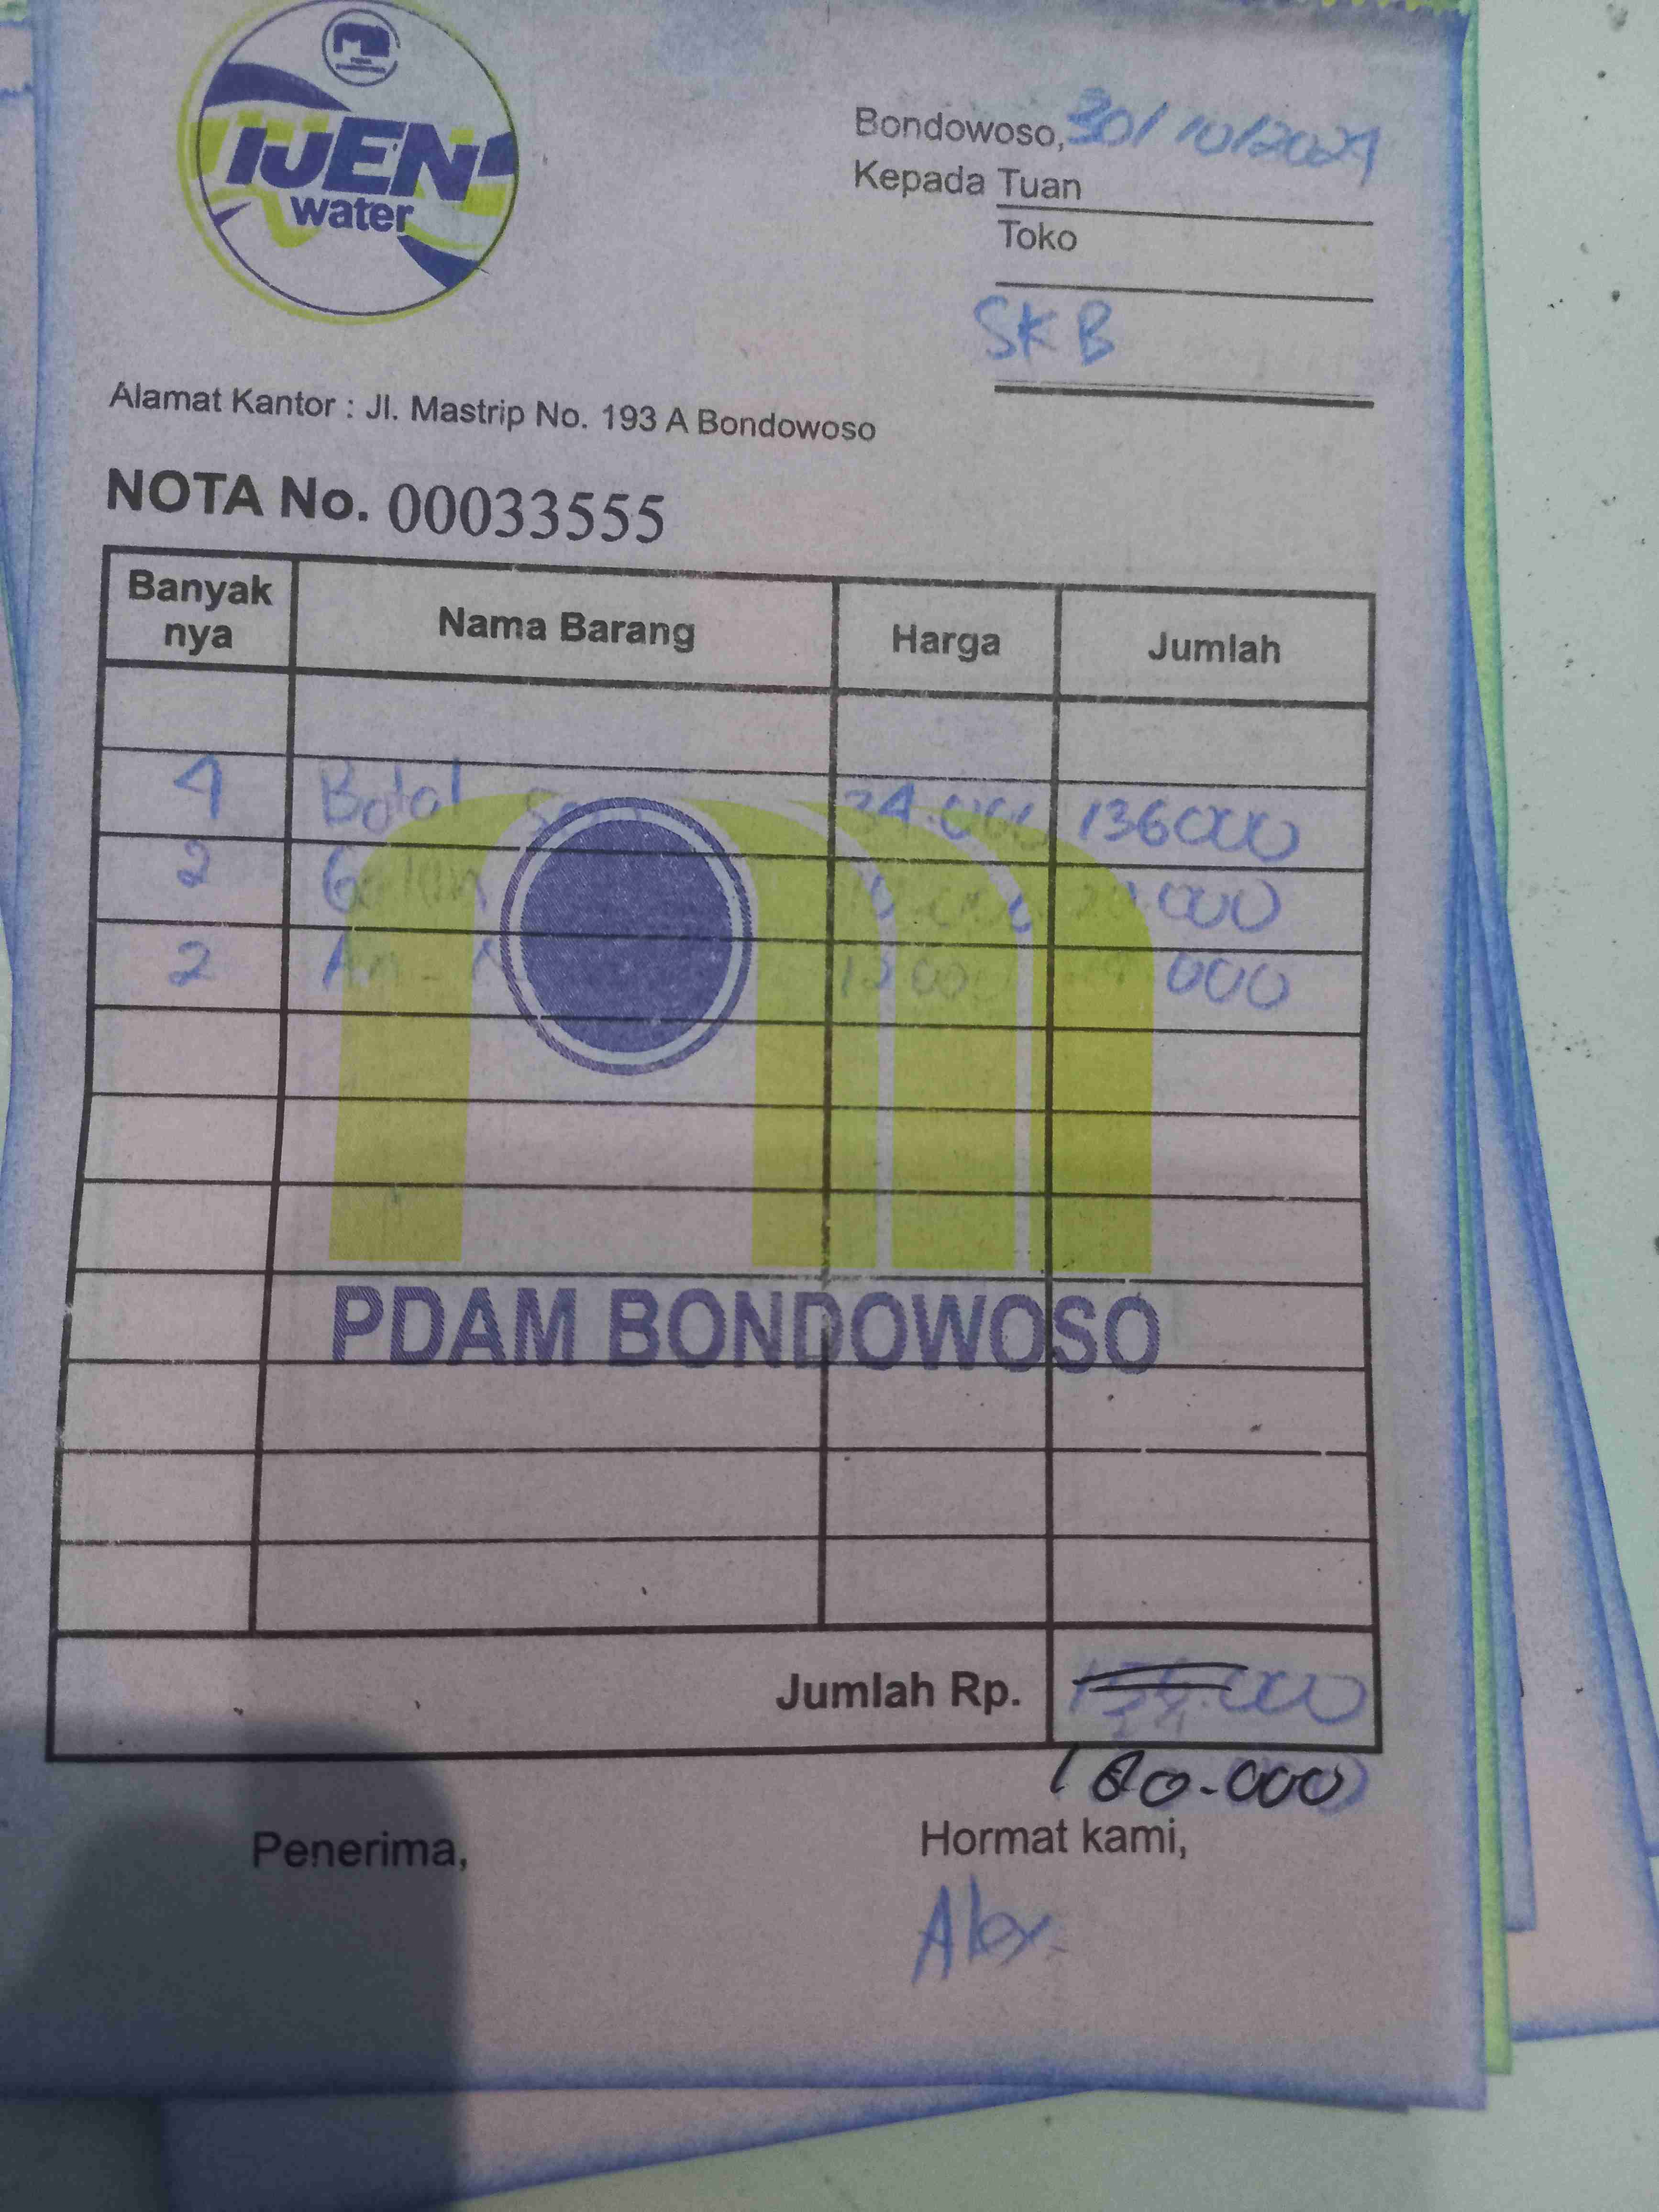 IJEN
water
Bondowoso, 30/10/2024
Kepada Tuan
Toko
SKB
Alamat Kantor : Jl. Mastrip No. 193 A Bondowoso
NOTA No. 00033555
Banyak nya Nama Barang Harga Jumlah
4 Botol 34.000 136000
2 Galon 000
2 000
PDAM BONDOWOSO
Jumlah Rp.
180.000
Penerima, Hormat kami,
Alex